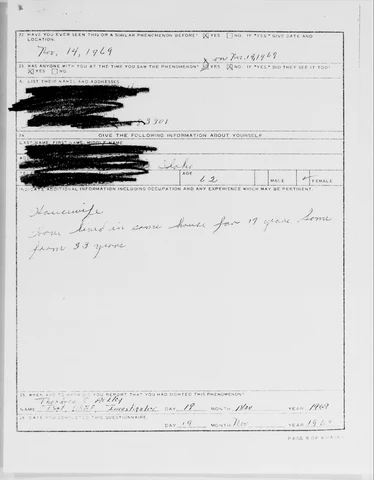 22. HAVE YOU EVER SEEN THIS OR A SIMILAR PHENOMENON BEFORE? ☒ YES ☐ NO IF "YES" GIVE DATE AND LOCATION.
Nov. 14, 1969
on Nov. 19, 1969
23. WAS ANYONE WITH YOU AT THE TIME YOU SAW THE PHENOMENON? ☒ YES ☐ NO IF "YES," DID THEY SEE IT TOO?
☒ YES ☐ NO
LIST THEIR NAMES AND ADDRESSES
3301
24. GIVE THE FOLLOWING INFORMATION ABOUT YOURSELF
LAST NAME, FIRST NAME, MIDDLE NAME
Idaho
AGE
62 MALE FEMALE
INDICATE ADDITIONAL INFORMATION INCLUDING OCCUPATION AND ANY EXPERIENCE WHICH MAY BE PERTINENT.
Housewife
Have lived in same house for 17 years
from 33 years
25. WHEN AND TO WHOM DID YOU REPORT THAT YOU HAD SIGHTED THIS PHENOMENON?
NAME Investigator DAY 19 MONTH Nov YEAR 1969
26. DATE YOU COMPLETED THIS QUESTIONNAIRE.
DAY 19 MONTH Nov YEAR 1969